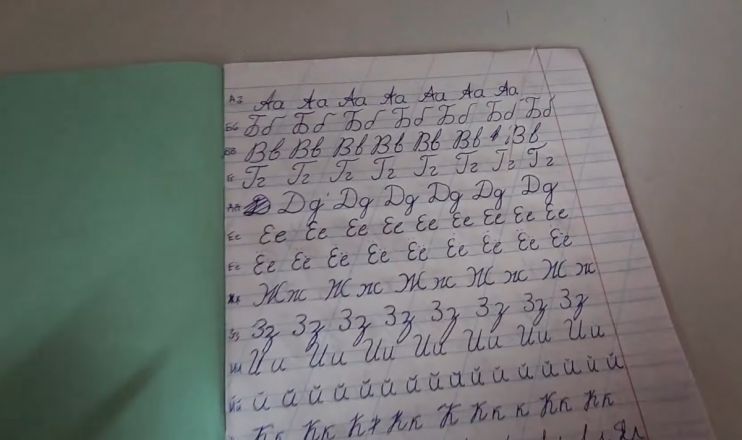 Аа Аа Аа Аа Аа Аа Аа Аа
Бб Бб Бб Бб Бб Бб Бб Бб Бб
Вв Вв Вв Вв Вв Вв Вв Вв
Гг Гг Гг Гг Гг Гг Гг Гг Гг
Дд Дд Дд Дд Дд Дд
Ее Ее Ее Ее Ее Ее Ее Ее Ее Ее
Ее Её Её Её Её Её Её Её Её Её
Жж Жж Жж Жж Жж Жж
Зз Зз Зз Зз Зз Зз Зз Зз Зз
Ии Ии Ии Ии Ии Ии Ии
й й й й й й й й й й й й й й й
Кк Кк Кк Кк К Кк к Кк Кк